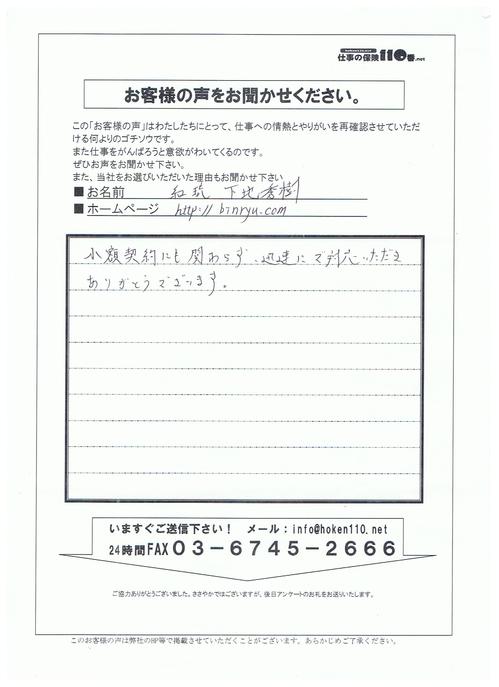 hoken110.net
仕事の保険110番.net
お客様の声をお聞かせください。
この「お客様の声」はわたしたちにとって、仕事への情熱とやりがいを再確認させていただ
ける何よりのゴチソウです。
また仕事をがんばろうと意欲がわいてくるのです。
ぜひお声をお聞かせ下さい。
また、当社をお選びいただいた理由もお聞かせ下さい
■お名前 紅琉 下地秀樹
■ホームページ http://binryu.com
小額契約にも関わらず、迅速にご対応いただき
ありがとうございます。
いますぐご送信下さい! メール:info@hoken110.net
24時間FAX03-6745-2666
ご協力ありがとうございました。ささやかではございますが、後日アンケートのお礼をお送りいたします。
このお客様の声は弊社のHP等で掲載させていただくことがございます。あらかじめご了承ください。